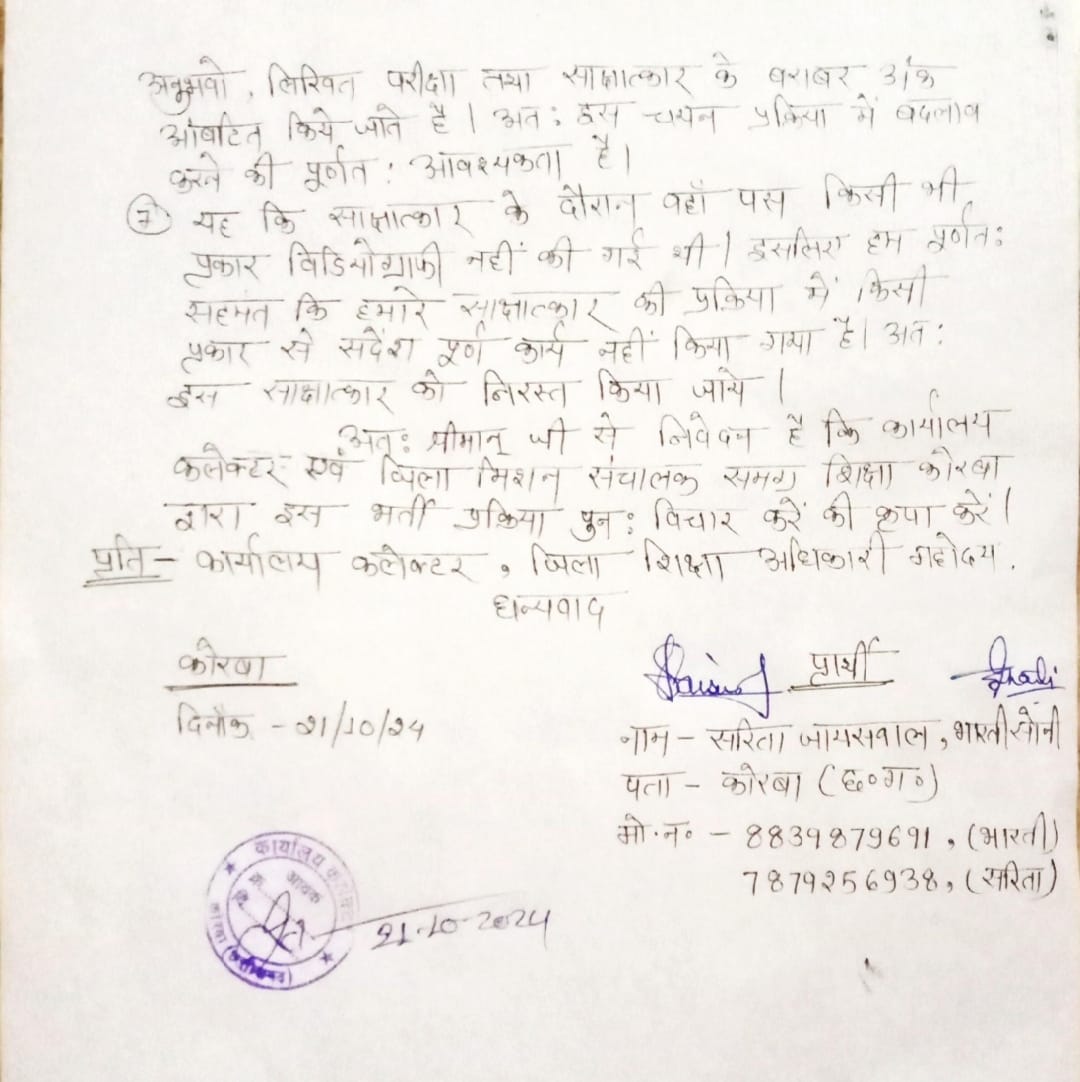 अनुभवो, लिखित परीक्षा तथा साक्षात्कार के बराबर अंक
आंबटित किये जाते है। अत: इस चयन प्रक्रिया में बदलाव
करने की पूर्णत: आवश्यकता है।
(7) यह कि साक्षात्कार के दौरान वहाँ पस किसी भी
प्रकार विडियोग्राफी नहीं की गई थी। इसलिए हम पूर्णत:
सहमत कि हमारे साक्षात्कार की प्रक्रिया में किसी
प्रकार से संदेश पूर्ण कार्य नहीं किया गया है। अत:
इस साक्षात्कार को निरस्त किया जाये।
अत: श्रीमान् जी से निवेदन है कि कार्यालय
कलेक्टर एवं जिला मिशन संचालक समग्र शिक्षा कोरबा
द्वारा इस भर्ती प्रक्रिया पुन: विचार करें की कृपा करें।
प्रति - कार्यालय कलेक्टर, जिला शिक्षा अधिकारी महोदय.
धन्यवाद
कोरबा
दिनाँक - 21/10/24
प्रार्थी
नाम - सरिता जायसवाल, भारती सोनी
पता - कोरबा (छ०ग०)
मो.न० - 8839879691, (भारती)
7879256938, (सरिता)
कार्यालय कलेक्टर
आवक
कोरबा (छत्तीसगढ़)
21-10-2024